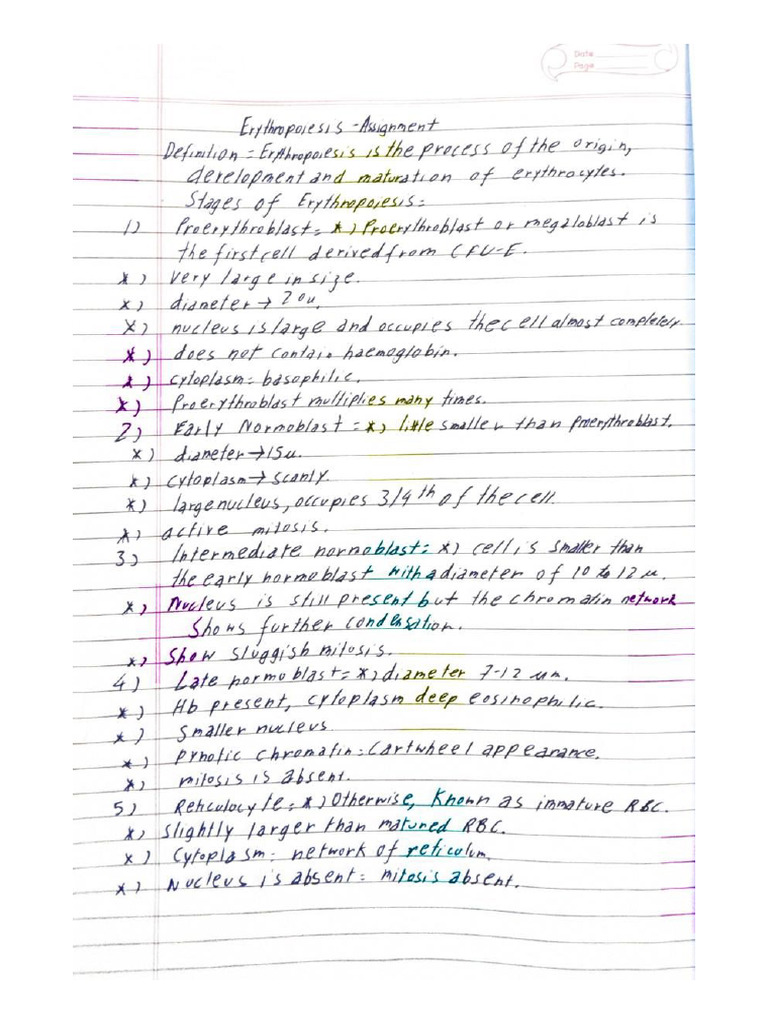 Date
Page
Erythropoiesis - Assignment
Definition = Erythropoiesis is the process of the origin,
development and maturation of erythrocytes.
Stages of Erythropoiesis =
1) Proerythroblast = *) Proerythroblast or megaloblast is
the first cell derived from CFU-E.
*) very large in size.
*) diameter → 20u.
*) nucleus is large and occupies the cell almost completely.
*) does not contain haemoglobin.
*) cytoplasm = basophilic.
*) Proerythroblast multiplies many times.
2) Early Normoblast = *) little smaller than Proerythroblast.
*) diameter → 15u.
*) cytoplasm → scanly.
*) large nucleus, occupies 3/4th of the cell.
*) active mitosis.
3) Intermediate normoblast = *) cell is smaller than
the early normoblast with a diameter of 10 to 12 u.
*) Nucleus is still present but the chromatin network
shows further condensation.
*) Show sluggish mitosis.
4) Late normoblast = *) diameter 7-12 um.
*) Hb present, cytoplasm deep eosinophilic.
*) Smaller nucleus
*) Pynotic chromatin = Cartwheel appearance.
*) mitosis is absent.
5) Reticulocyte = *) Otherwise, known as immature RBC.
*) slightly larger than matured RBC.
*) Cytoplasm = network of reticulum.
*) Nucleus is absent = mitosis absent.